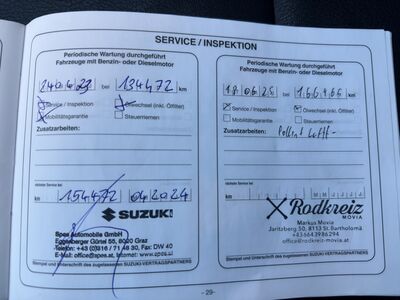 SERVICE / INSPEKTION
Periodische Wartung durchgeführt
Fahrzeuge mit Benzin- oder Dieselmotor
240423 bei 134472 km
Service / Inspektion
Ölwechsel (inkl. Ölfilter)
Mobilitätsgarantie
Steuerriemen
Zusatzarbeiten:
nächste Service bei
154472 042024
SUZUKI
Spes Automobile GmbH
Eggenberger Gürtel 55, 8020 Graz
Tel. +43 (0)316 / 71 48 30, Fax: DW 40
E-Mail: office@spes.at, Internet: www.spes.at
Stempel und Unterschrift des zugelassenen SUZUKI-VERTRAGSPARTNERS
Periodische Wartung durchgeführt
Fahrzeuge mit Benzin- oder Dieselmotor
180625 bei km
Service / Inspektion
Ölwechsel (inkl. Ölfilter)
Mobilitätsgarantie
Steuerriemen
Zusatzarbeiten:
nächste Service bei
km
Rodkreiz
MOVIA
Markus Movia
Jaritzberg 50, 8113 St. Bartholomä
+436643986294
office@rodkreiz-movia.at
Stempel und Unterschrift des zugelassenen SUZUKI-VERTRAGSPARTNERS
-29-